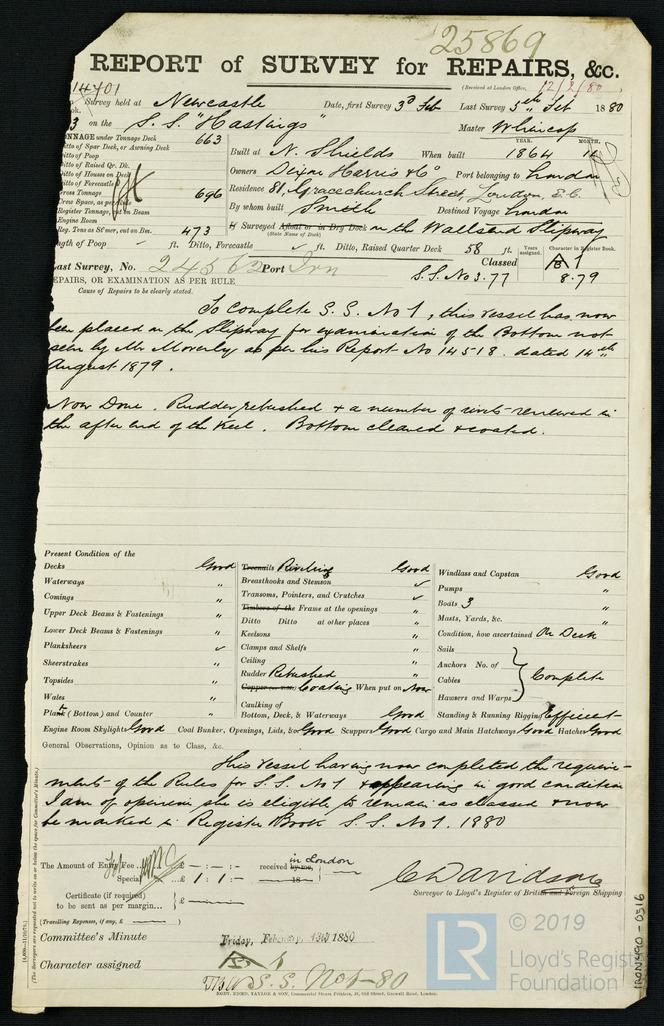 25869
REPORT of SURVEY for REPAIRS, &c.
(Received at London Office, 12/2/80
14701
Survey held at Newcastle Date, first Survey 3d Feb Last Survey 5th Feb 1880
on the S.S. "Hastings" Master Whincop
TONNAGE under Tonnage Deck 663
YEAR. MONTH.
Ditto of Spar Deck, or Awning Deck
Ditto of Poop
Built at N. Shields When built 1864 11
Ditto of Raised Qr. Dk.
Ditto of Houses on Deck
Owners Dixon Harris & Co Port belonging to London
Ditto of Forecastle
Gross Tonnage 696
Residence 81, Gracechurch Street, London, E.C.
Register Tonnage, cut on Beam
By whom built Smith Destined Voyage London
Engine Room
Reg. Tons as St'mer, cut on Bm. 473
If Surveyed Afloat or in Dry Dock on the Wallsend Slipway
(State Name of Dock)
Length of Poop - ft. Ditto, Forecastle ft. Ditto, Raised Quarter Deck 58 ft.
Years assigned. Character in Register Book.
Last Survey, No. 24562 Port Irn Classed A 1
S.S. No 3.77 8.79
REPAIRS, OR EXAMINATION AS PER RULE
Cause of Repairs to be clearly stated.
To complete S.S. No 1, this vessel has now
been placed on the Slipway for examination of the Bottom not
seen by Mr Moverly as per his Report No 14518. dated 14th
August 1879.
Now Done. Rudder rebushed & a number of rivets renewed in
the after end of the Keel. Bottom cleaned & coated.
Present Condition of the
Decks Good
Waterways "
Comings "
Upper Deck Beams & Fastenings "
Lower Deck Beams & Fastenings "
Planksheers
Sheerstrakes "
Topsides "
Wales "
Plank (Bottom) and Counter "
Treenails Riveting Good
Breasthooks and Stemson
Transoms, Pointers, and Crutches
Timbers of the Frame at the openings "
Ditto Ditto at other places "
Keelsons "
Clamps and Shelfs "
Ceiling "
Rudder Rebushed "
Copper or Coating When put on Now
Caulking of
Bottom, Deck, & Waterways Good
Windlass and Capstan Good
Pumps "
Boats 3 "
Masts, Yards, &c. "
Condition, how ascertained On Deck
Sails
Anchors No. of
Cables
Hawsers and Warps
Complete
Standing & Running Rigging Efficient
Engine Room Skylights Good Coal Bunker, Openings, Lids, &c Good Scuppers Good Cargo and Main Hatchways Good Hatches Good
General Observations, Opinion as to Class, &c.
This vessel having now completed the require-
ments of the Rules for S.S. No 1 & appearing in good condition
I am of opinion she is eligible to remain as classed & now
be marked in Register Book S.S. No 1. 1880
The Amount of Entry Fee £ - : - : - received by me, in London
Special £ 1 : 1 : - 18
Certificate (if required)
to be sent as per margin... £
(Travelling Expenses, if any, £
C Davidson
Surveyor to Lloyd's Register of British and Foreign Shipping
Committee's Minute Friday, February 13th 1880
Character assigned A 1
S.S. No 1-80
(The Surveyors are requested not to write on or below the space for Committee's Minute.)
IRON490-0316
LR
© 2019
Lloyd's Register
Foundation